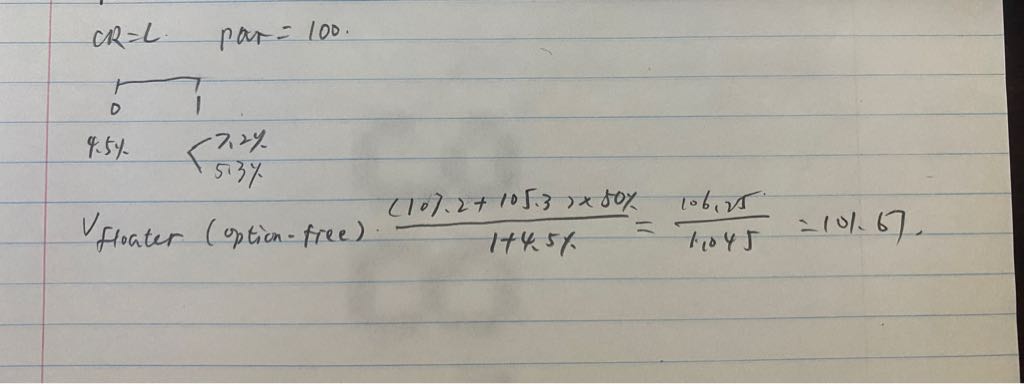 CR=L. par= 100.
0 1
4.5% 7.2%
5.3%
V floater (option-free). (107.2+105.3)×50% / 1+4.5% = 106.25 / 1.045 = 101.67.